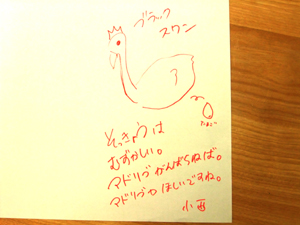 ブラック
スワン
たまご
そっきょうは
むずかしい。
マドリブがんばらねば。
マドリブかほしいですね。
小西